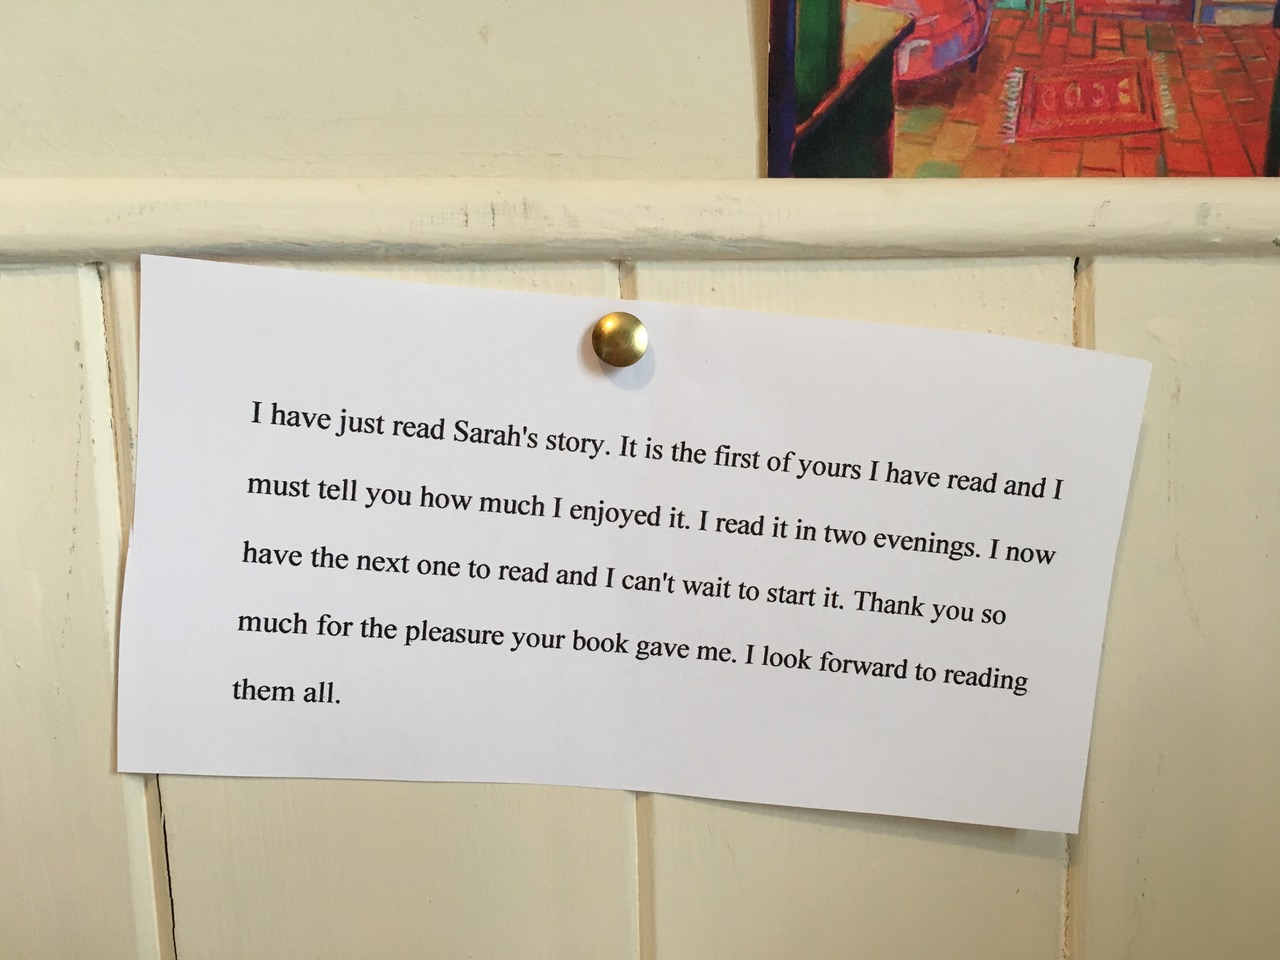 I have just read Sarah's story. It is the first of yours I have read and I
must tell you how much I enjoyed it. I read it in two evenings. I now
have the next one to read and I can't wait to start it. Thank you so
much for the pleasure your book gave me. I look forward to reading
them all.